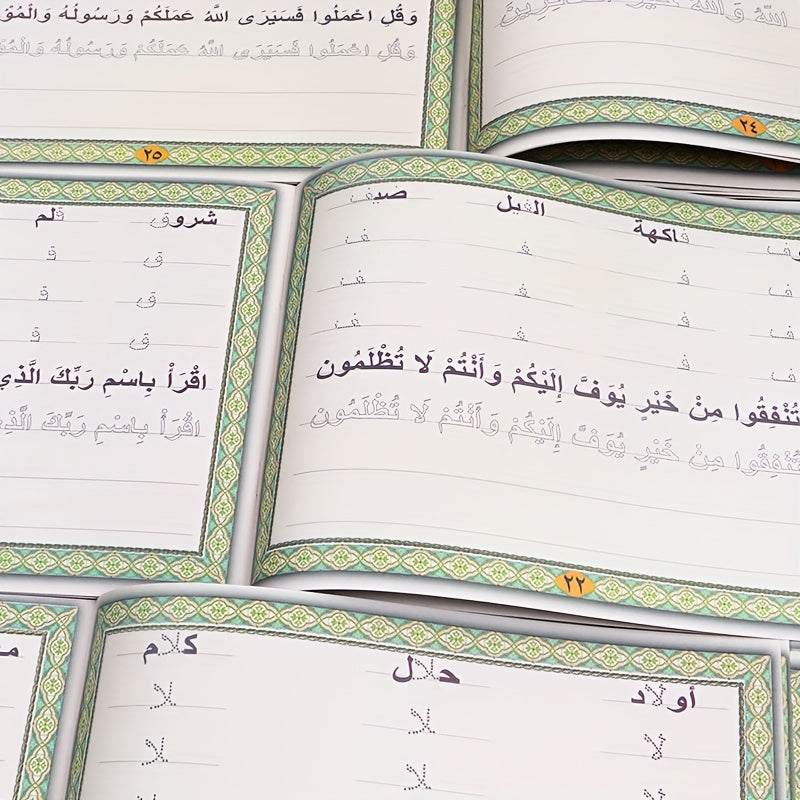 وَقُلِ اعْمَلُوا فَسَيَرَى اللَّهُ عَمَلَكُمْ وَرَسُولُهُ
وَقُلِ اعْمَلُوا فَسَيَرَى اللَّهُ عَمَلَكُمْ وَرَسُولُهُ
٢٥
اللَّهُ وَاللَّهُ خَيْرُ
٢٤
فاكهة الفيل ضيف
ف ف ف ف
ف ف ف ف
ف ف ف ف
تُنْفِقُوا مِنْ خَيْرٍ يُوَفَّ إِلَيْكُمْ وَأَنْتُمْ لَا تُظْلَمُون
تُنْفِقُوا مِنْ خَيْرٍ يُوَفَّ إِلَيْكُمْ وَأَنْتُمْ لَا تُظْلَمُون
٢٢
شروق قلم
ق ق
ق ق
ق ق
اقْرَأْ بِاسْمِ رَبِّكَ الَّذِي
اقْرَأْ بِاسْمِ رَبِّكَ الَّذِي
أولاد حلال كلام
لا لا لا
لا لا لا